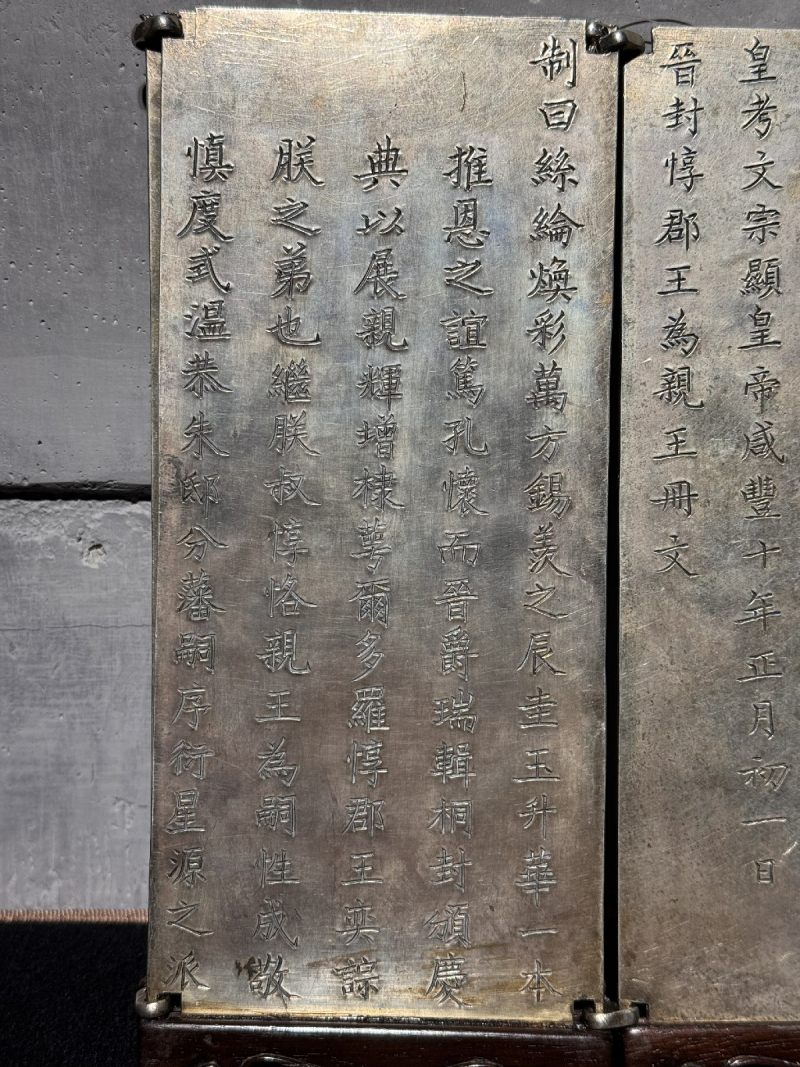 皇考文宗顯皇帝咸豐十年正月初一日
晉封惇郡王為親王冊文
制曰絲綸煥彩萬方錫羨之辰圭玉升華一本
推恩之誼篤孔懷而晉爵瑞輯桐封頒慶
典以展親輝增棣萼爾多羅惇郡王奕誴
朕之弟也繼朕叔惇恪親王為嗣性成敬
慎度式溫恭朱邸分藩嗣序衍星源之派